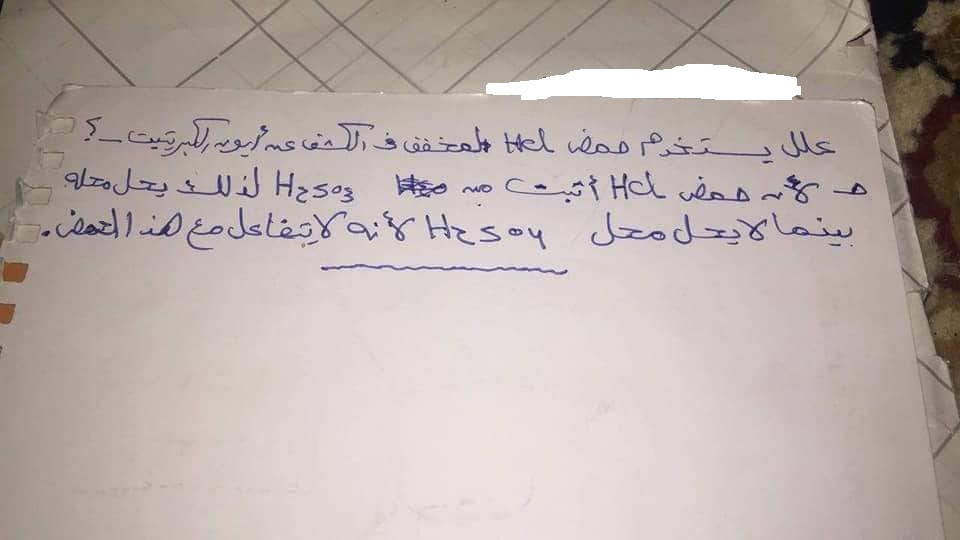 علل يستخدم حمض Hcl المخفف في الكشف عن أيون الكبريتيت ـ ؟
حـ لأن حمض HCl أثبت من H2SO3 لذلك يحل محله
بينما لا يحل محل H2SO4 لأنه لا يتفاعل مع هذا الحمض .